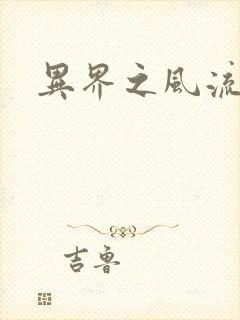 異界之風流
吉魯